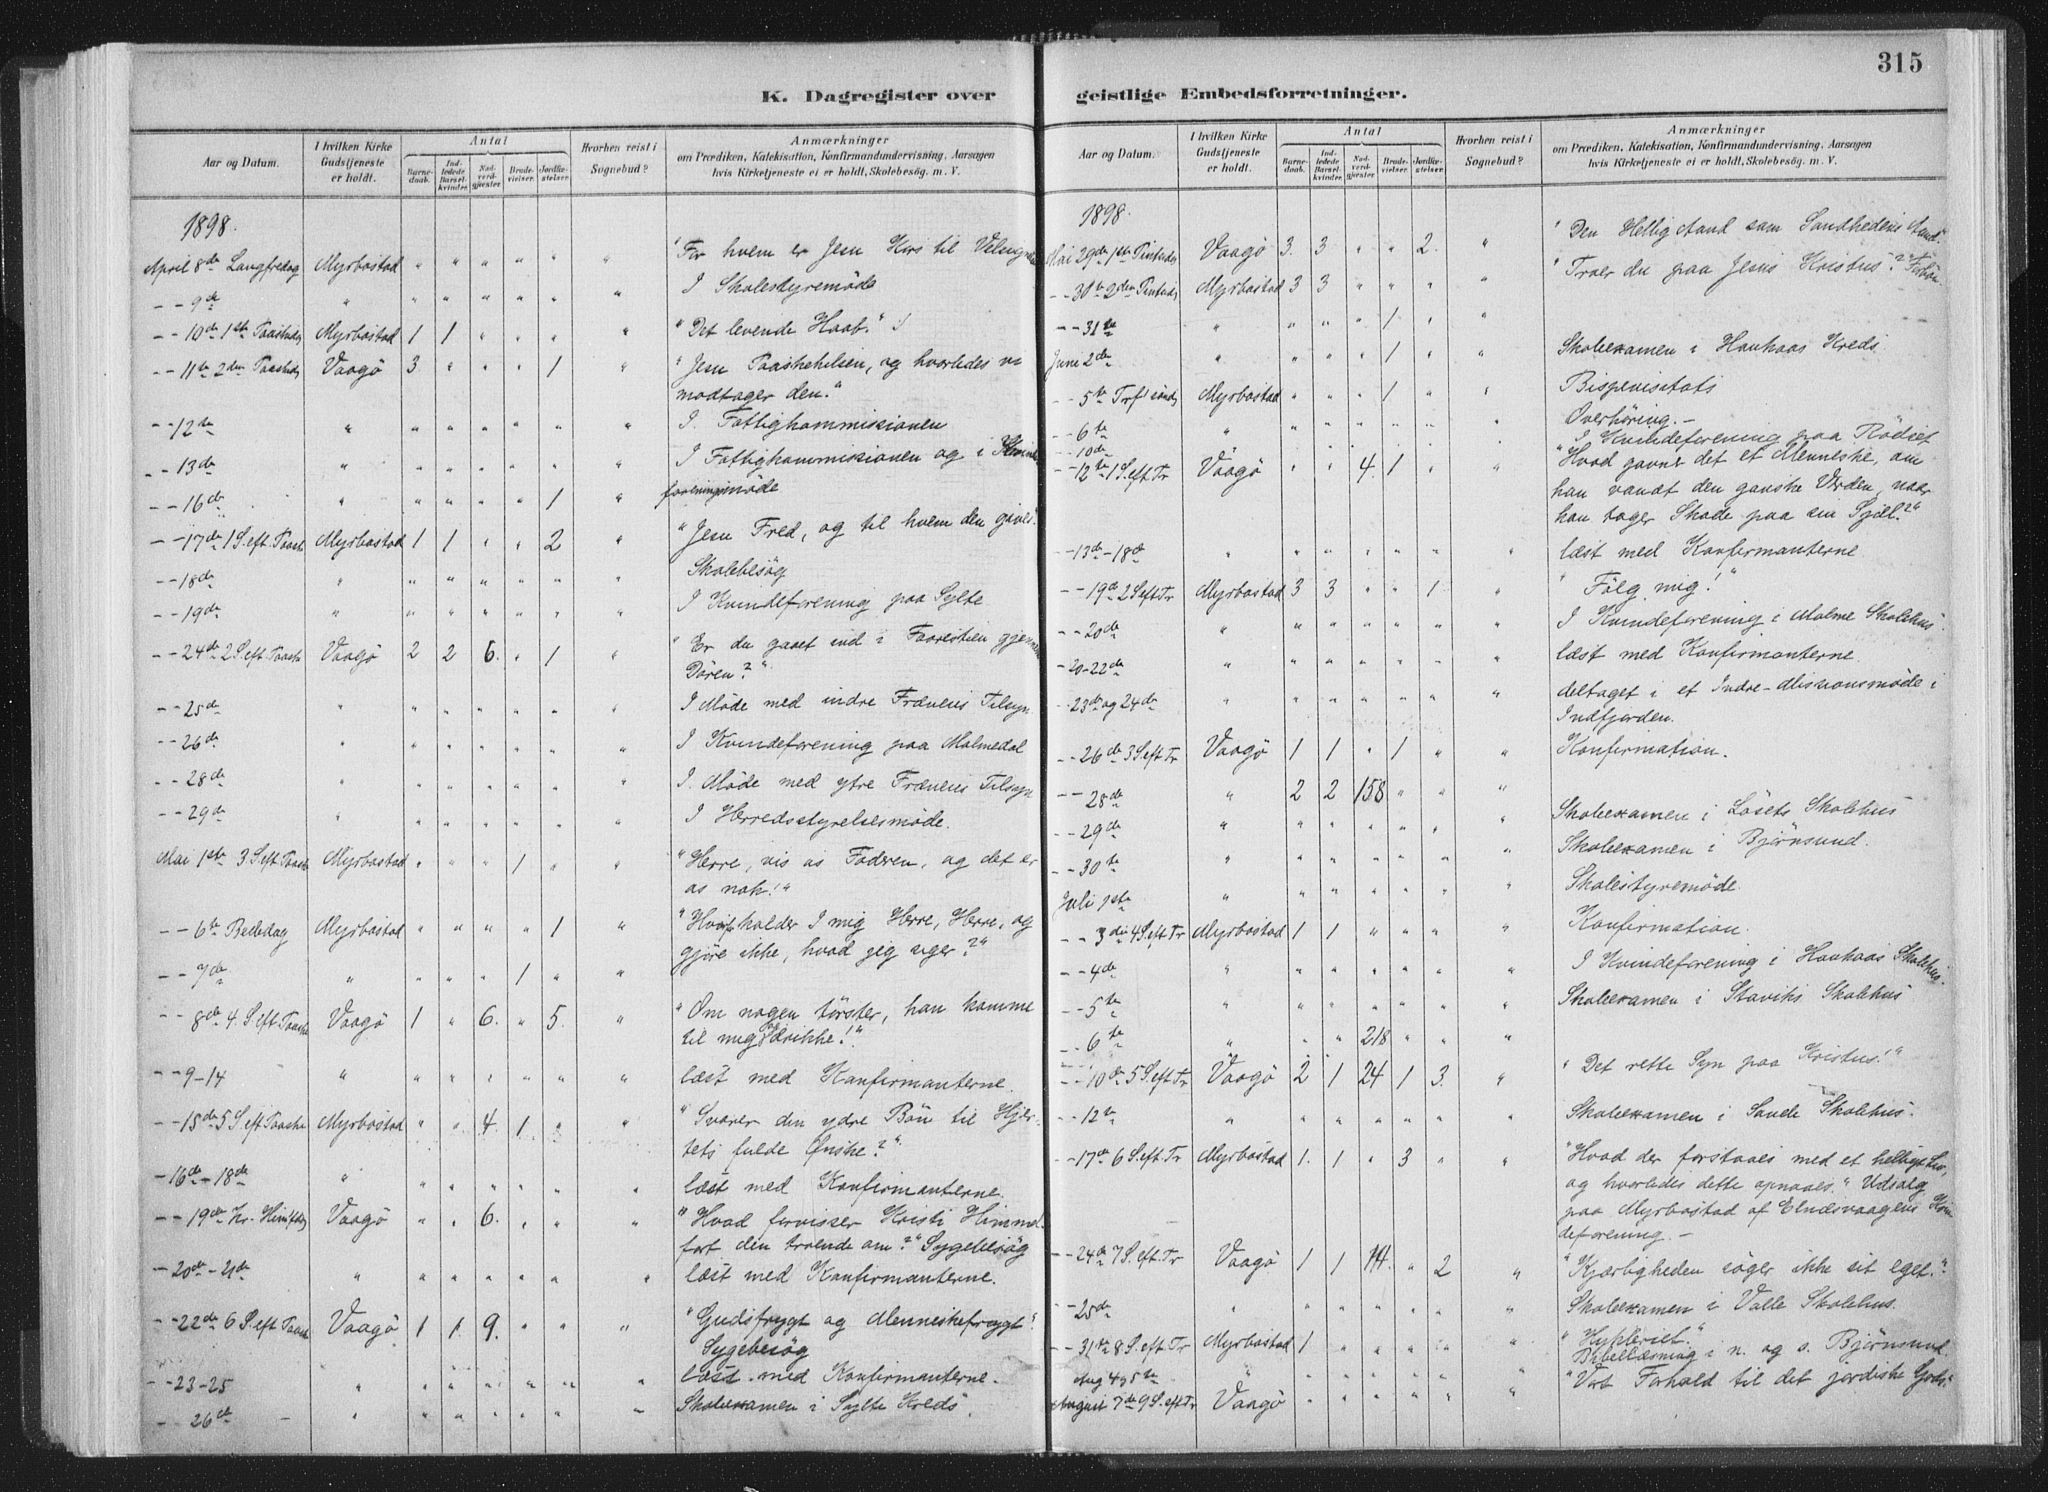 315
K. Dagregister over geistlige Embedsforretninger.
Aar og Datum.
I hvilken Kirke Gudstjeneste er holdt.
Antal
Barnedaab.
Indledede Barselkvinder.
Nadverdgjester.
Brudevielser.
Jordfæstelser.
Hvorhen reist i Sognebud?
Anmærkninger
om Prædiken, Katekisation, Konfirmandundervisning, Aarsagen
hvis Kirketjeneste ei er holdt, Skolebesög. m. V.
1898.
April 8de Langfredag Myrbostad " " " " " " "For hvem er Jesu Kors til Velsignelse
- - 9de " " " " " " " I Skolestyremöde
- - 10de 1ste Paaskedag Myrbostad 1 1 " " " " "Det levende Haab."
- - 11te 2den Paaskedag Vaagö 3. " " " 1 " "Jesu Paaskehilsen, og hvorledes vi
modtager den."
- - 12te " " " " " " " I Fattigkommissionen
- - 13de " " " " " " " I Fattigkommissionen og i Kvinde
foreningsmöde
- - 16de " " " " " 1 "
- - 17de 1 S. eft. Paaske Myrbostad 1 1 " " 2 " "Jesu Fred, og til hvem den gives.
- - 18de " " " " " " " Skolebesög
- - 19de " " " " " " " I Kvindeforening paa Sylte
- - 24de 2 S. eft. Paaske Vaagö 2 2 6. " 1 " "Er du gaaet ind i Faarestien gjennem
Dören?"
- - 25de " " " " " " " I Möde med indre Frænens Tilsyn
- - 26de " " " " " " " I Kvindeforening paa Malmedal
- - 28de " " " " " " " I Möde med ytre Frænens Tilsyn
- - 29de " " " " " " " I Herredsstyrelsesmöde.
Mai 1ste 3 S. eft Paaske Myrbostad " " " 1 " " "Herre, vis os Faderen, og det er
os nok!"
- - 6te Bededag Myrbostad " " " " 1 " "Hvi kalder I mig Herre, Herre, og
gjöre ikke, hvad jeg siger?"
- - 7de " " " " 1 " "
- - 8de 4. S. eft Paaske Vaagö 1 " 6. " 5. " "Om nogen törster, han komme
til mig og drikke!"
- - 9-14 " " " " " " " læst med Konfirmanterne.
- - 15de 5 S. eft Paaske Myrbostad " " 4. 1 " " "Svarer den ydre Bön til Hjer-
tets fulde Önske?"
- 16de - 18de " " " " " " " læst med Konfirmanterne.
- - 19de Kr. Himlfdg Vaagö " " 6. " " " "Hvad forvisser Kristi Himmel-
fart den troende om?" Sygebesög
- - 20de - 21de " " " " " " " læst med Konfirmanterne.
- - 22de 6 S. eft Paaske Vaagö 1 1 9. " " " "Gudsfrygt og Menneskefrygt".
Sygebesög
- - 23-25 " " " " " " " læst med Konfirmanterne.
- - 26de " " " " " " " Skoleexamen i Sylte Kreds.
Aar og Datum.
I hvilken Kirke Gudstjeneste er holdt.
Antal
Barnedaab.
Indledede Barselkvinder.
Nadverdgjester.
Brudevielser.
Jordfæstelser.
Hvorhen reist i Sognebud?
Anmærkninger
om Prædiken, Katekisation, Konfirmandundervisning, Aarsagen
hvis Kirketjeneste ei er holdt, Skolebesög. m. V.
1898.
Mai 29de 1ste Pintsedag Vaagö 3. 3 " " 2. " "Den Hellig Aand som Sandhedens Aand."
- - 30te 2den Pintsedag Myrbostad 3 3 " " " " "Troer du paa Jesus Kristus?"
- - 31te " " " " 1 " "
Juni 2de " " " " 1 " " Skoleexamen i Haukaas Kreds.
- - 5te Trf. sönd Myrbostad " " " 1 " " Bispevisitats
- - 6te " " " " " " " Overhöring. -
- - 10de I Kvindeforening paa Rödset
- - 12te 1 S. eft Tr Vaagö " " 4. 1 " " "Hvad gavner det et Menneske, om
han vandt den ganske Verden, naar
han tager Skade paa sin Sjæl?"
- - 13de - 18de " " " " " " " læst med Konfirmanterne
- - 19de 2 S eft Tr Myrbostad 3 3 " " 1 " "Fölg mig!"
- - 20de " " " " " " " I Kvindeforening i Malme Skolehus.
- 20-22de " " " " " " " læst med Konfirmanterne.
- - 23de og 24de " " " " " " " deltaget i et Indre-Missionsmöde i
Indfjorden.
- - 26de 3 S. eft Tr Vaagö 1 1 " 1 " " Konfirmation.
- - 28de " 2 2 158 " " "
- - 29de " " " " " " " Skoleexamen i Lösets Skolehus
- - 30te " " " " " " " Skoleexamen i Björnsund.
Juli 1ste " " " " " " " Skolestyremöde.
- - 3die 4 S. eft Tr Myrbostad 1 1 " " " " Konfirmation.
- - 4de " " " " " " " I Kvindeforening i Haukaas Skolehus.
- - 5te " " " " " " " Skoleexamen i Staviks Skolehus
- - 6te " " " 218 " " "
- - 10de 5 S. eft Tr Vaagö 2 1 24 1 3. " "Det rette Syn paa Kristus!"
- - 12te " " " " " " " Skoleexamen i Sande Skolehus.
- - 17de 6 S. eft. Tr Myrbostad 1. 1 " 3 " " "Hvad der forstaaes med et helligt Liv,
og hvorledes dette opnaaes." Udsalg
paa Myrbostad af Elnesvaagens Kvin
deforening. -
- - 24de 7 S. eft. Tr Vaagö 1 1 14. " 2 " "Kjærligheden söger ikke sit eget."
- - 25de " " " " " " " Skoleexamen i Valle Skolehus.
- - 31te 8 S. eft Tr Myrbostad 1 " " " " " "Hykleriet."
Aug 4 og 5te Bibellæsning i n. og s. Björnsund
August 7de 9 S. eft Tr Vaagö " " " " " " "Vort Forhold til det jordiske Gods."